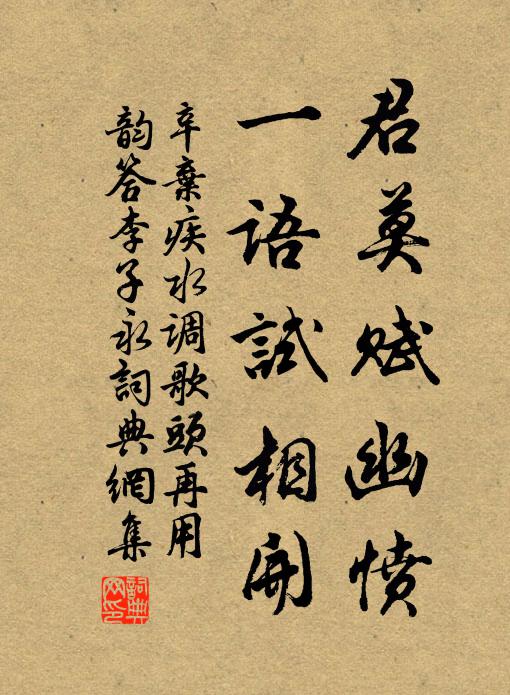 君莫賦幽憤
一語試相開
辛棄疾水調歌頭再用
韵答李子永詞典網集
詞典
网印